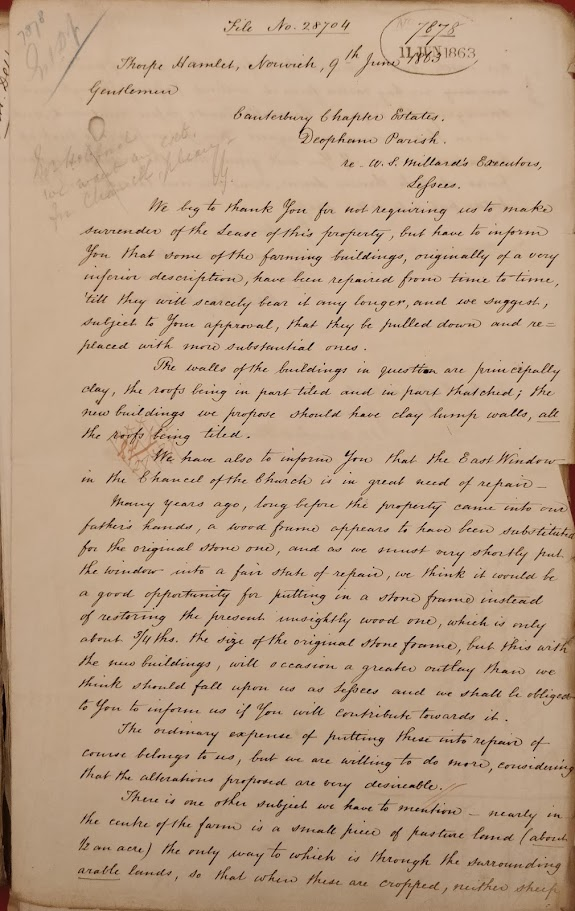 File No. 28704
7878
11 JUN 1863
7878
Thorpe Hamlet, Norwich, 9th June 1863
Gentlemen
Canterbury Chapter Estates.
Deopham Parish.
re - W. S. Millard's Executors,
Lessees.
We beg to thank You for not requiring us to make
surrender of the Lease of this property, but have to inform
You that some of the farming buildings, originally of a very
inferior description, have been repaired from time to time,
'till they will scarcely bear it any longer, and we suggest,
subject to Your approval, that they be pulled down and re=
placed with more substantial ones.
The walls of the buildings in question are principally
clay, the roofs being in part tiled and in part thatched; the
new buildings we propose should have clay lump walls, all
the roofs being tiled.
We have also to inform You that the East Window
in the Chancel of the Church is in great need of repair -
Many years ago, long before the property came into our
father's hands, a wood frame appears to have been substituted
for the original stone one, and as we must very shortly put
the window into a fair state of repair, we think it would be
a good opportunity for putting in a stone frame instead
of restoring the present unsightly wood one, which is only
about 3/4ths. the size of the original stone frame, but this with
the new buildings, will occasion a greater outlay than we
think should fall upon us as Lessees and we shall be obliged
to You to inform us if You will contribute towards it.
The ordinary expense of putting these into repair of
course belongs to us, but we are willing to do more, considering
that the alterations proposed are very desireable.
There is one other subject we have to mention - nearly in
the centre of the farm is a small piece of pasture land (about
1/2 an acre) the only way to which is through the surrounding
arable lands, so that when these are cropped, neither sheep